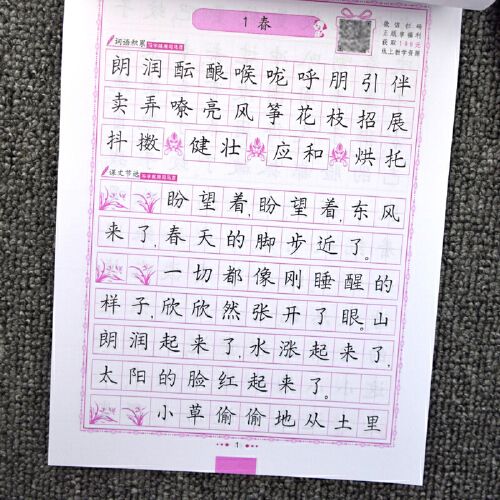 1 春
微信扫码
正版享福利
获取198元
线上教学资源
词语积累
朗润酝酿喉咙呼朋引伴
卖弄嘹亮风筝花枝招展
抖擞 健壮 应和 烘托
课文节选
盼望着,盼望着,东风
来了,春天的脚步近了。
一切都像刚睡醒的
样子,欣欣然张开了眼。山
朗润起来了,水涨起来了,
太阳的脸红起来了。
小草偷偷地从土里
1